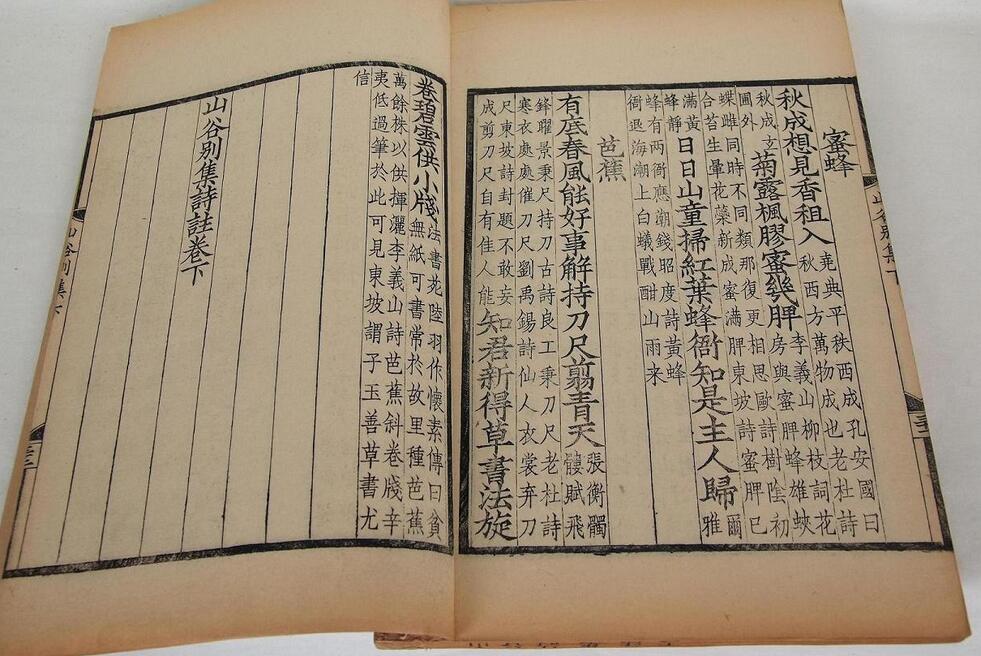 蜜蜂
秋成想見香租入堯典平秩西成孔安國曰秋西方萬物成也老杜詩
秋成圃外菊露楓膠蜜幾脾李義山柳枝詞花房與蜜脾蜂雄蛺
蝶雌同時不同類那復更相思歐詩樹陰初合苔生暈花蘂新成蜜滿脾東坡詩蜜脾已
滿黃蜂靜日日山童掃紅葉蜂衙知是主人歸爾雅
蜂有兩衙應潮錢昭度詩黃蜂衙退海潮上白蟻戰酣山雨来
芭蕉
有底春風能好事解持刀尺翦青天張衡髑髏賦飛
鋒曜景秉尺持刀古詩良工秉刀尺老杜詩寒衣處處催刀尺劉禹錫詩仙人衣裳弃刀
尺東坡詩封題不敢妄成剪刀尺自有佳人能知君新得草書法旋
山谷別集下
卷碧雲供小牋法書苑陸羽作懷素傳曰貧無紙可書常於故里種芭蕉
萬餘株以供揮灑李義山詩芭蕉斜卷牋辛夷低過筆於此可見東坡謂子玉善草書尤
信
山谷別集詩註卷下
山谷別集下